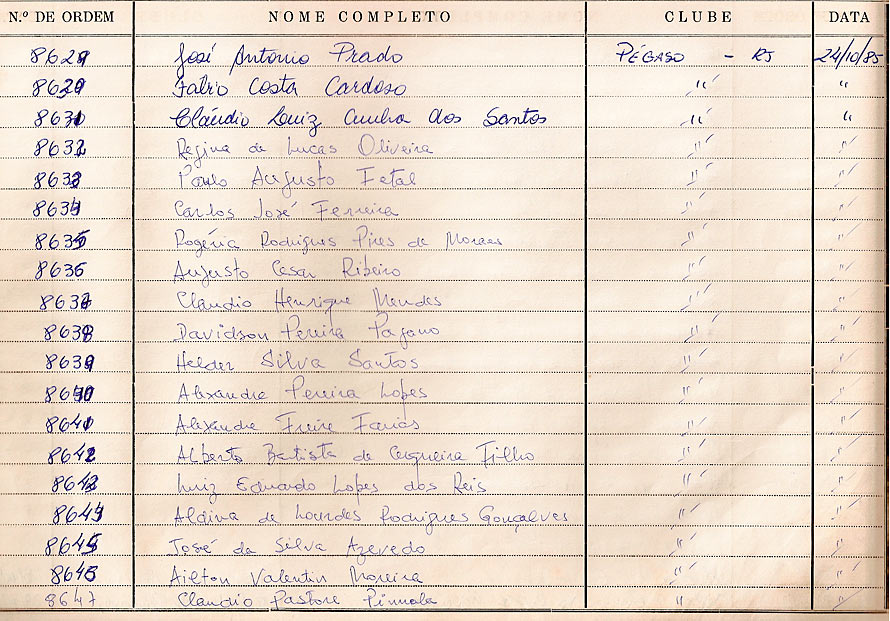 N.º DE ORDEM NOME COMPLETO CLUBE DATA
8629 José Antonio Prado PÉGASO - RJ 24/10/85
8629 Fabrio Costa Cardoso " "
8630 Cláudio Luiz Cunha dos Santos " "
8632 Regina de Lucas Oliveira " "
8633 Paulo Augusto Fetal " "
8634 Carlos José Ferreira " "
8635 Rogéria Rodrigues Pires de Moraes " "
8636 Augusto Cesar Ribeiro " "
8637 Claudio Henrique Mendes " "
8638 Davidson Pereira Pagano " "
8639 Helder Silva Santos " "
8640 Alexandre Pereira Lopes " "
8641 Alexandre Freire Farias " "
8642 Alberto Batista de Cerqueira Filho " "
8643 Luiz Eduardo Lopes dos Reis " "
8644 Aldina de Lourdes Rodrigues Gonçalves " "
8645 José da Silva Azevedo " "
8646 Ailton Valentin Moreira " "
8647 Claudio Pastore " "